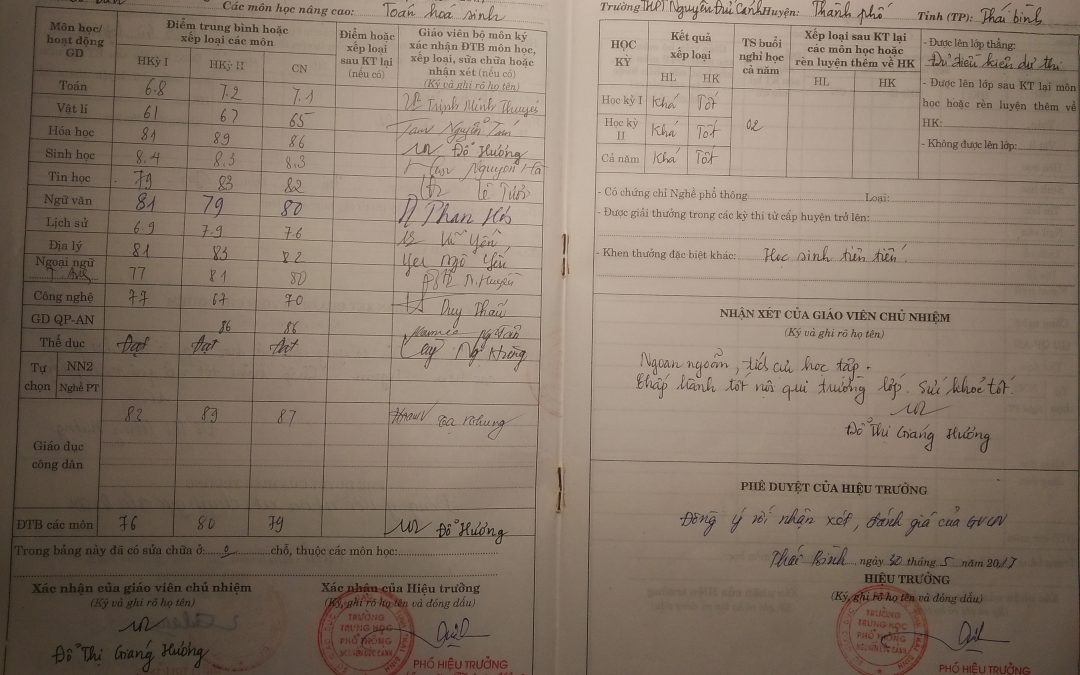 Các môn học nâng cao: Toán hoá sinh
Môn học/ hoạt động GD
Điểm trung bình hoặc xếp loại các môn
HKỳ I HKỳ II CN
Điểm hoặc xếp loại sau KT lại (nếu có)
Giáo viên bộ môn ký xác nhận ĐTB môn học, xếp loại, sửa chữa hoặc nhận xét (nếu có)
(Ký và ghi rõ họ tên)
Toán 6.8 7.2 7.1 Trịnh Minh
Vật lí 61 67 65 Nguyễn
Hóa học 81 89 86 Đỗ Hương
Sinh học 8.4 8.3 8.3 Nguyễn
Tin học 79 83 82 Lê
Ngữ văn 81 79 80 Phan
Lịch sử 6.9 7.9 7.6 Vũ Yến
Địa lý 81 83 82 Ngô Yến
Ngoại ngữ 77 81 80 N.Huyền
Công nghệ 77 67 70 Duy
GD QP-AN 86 86
Thể dục Đạt Đạt Đạt
Tự chọn NN2
Nghề PT
Giáo dục công dân 83 89 87 Nhung
ĐTB các môn 76 80 79 Đỗ Hương
Trong bảng này đã có sửa chữa ở: 0 chỗ, thuộc các môn học:
Xác nhận của giáo viên chủ nhiệm
(Ký và ghi rõ họ tên)
Đỗ Thị Giang Hương
Xác nhận của Hiệu trưởng
(Ký, ghi rõ họ tên và đóng dấu)
TRƯỜNG
TRUNG HỌC
PHỔ THÔNG
NGUYỄN ĐỨC CẢNH
PHÓ HIỆU TRƯỞNG
Trường THPT Nguyễn Đức Cảnh Huyện: Thành phố Tỉnh (TP): Thái bình
HỌC KỲ
Kết quả xếp loại
HL HK
TS buổi nghỉ học cả năm
Xếp loại sau KT lại các môn học hoặc rèn luyện thêm về HK
HL HK
Học kỳ I Khá Tốt
Học kỳ II Khá Tốt 02
Cả năm Khá Tốt
- Được lên lớp thẳng:
Đủ điều kiện dự thi
- Được lên lớp sau KT lại môn
học hoặc rèn luyện thêm về
HK:
- Không được lên lớp:
- Có chứng chỉ Nghề phổ thông Loại:
- Được giải thưởng trong các kỳ thi từ cấp huyện trở lên:
- Khen thưởng đặc biệt khác: Học sinh tiên tiến.
NHẬN XÉT CỦA GIÁO VIÊN CHỦ NHIỆM
(Ký và ghi rõ họ tên)
Ngoan ngoãn, tích cực học tập.
Chấp hành tốt nội qui trường lớp. Sức khoẻ tốt.
Đỗ Thị Giang Hương
PHÊ DUYỆT CỦA HIỆU TRƯỞNG
Đồng ý với nhận xét, đánh giá của GVCN
Thái Bình, ngày 30 tháng 5 năm 2017
HIỆU TRƯỞNG
(Ký, ghi rõ họ tên và đóng dấu)
TRƯỜNG
TRUNG HỌC
PHỔ THÔNG
NGUYỄN ĐỨC CẢNH
PHÓ HIỆU TRƯỞNG